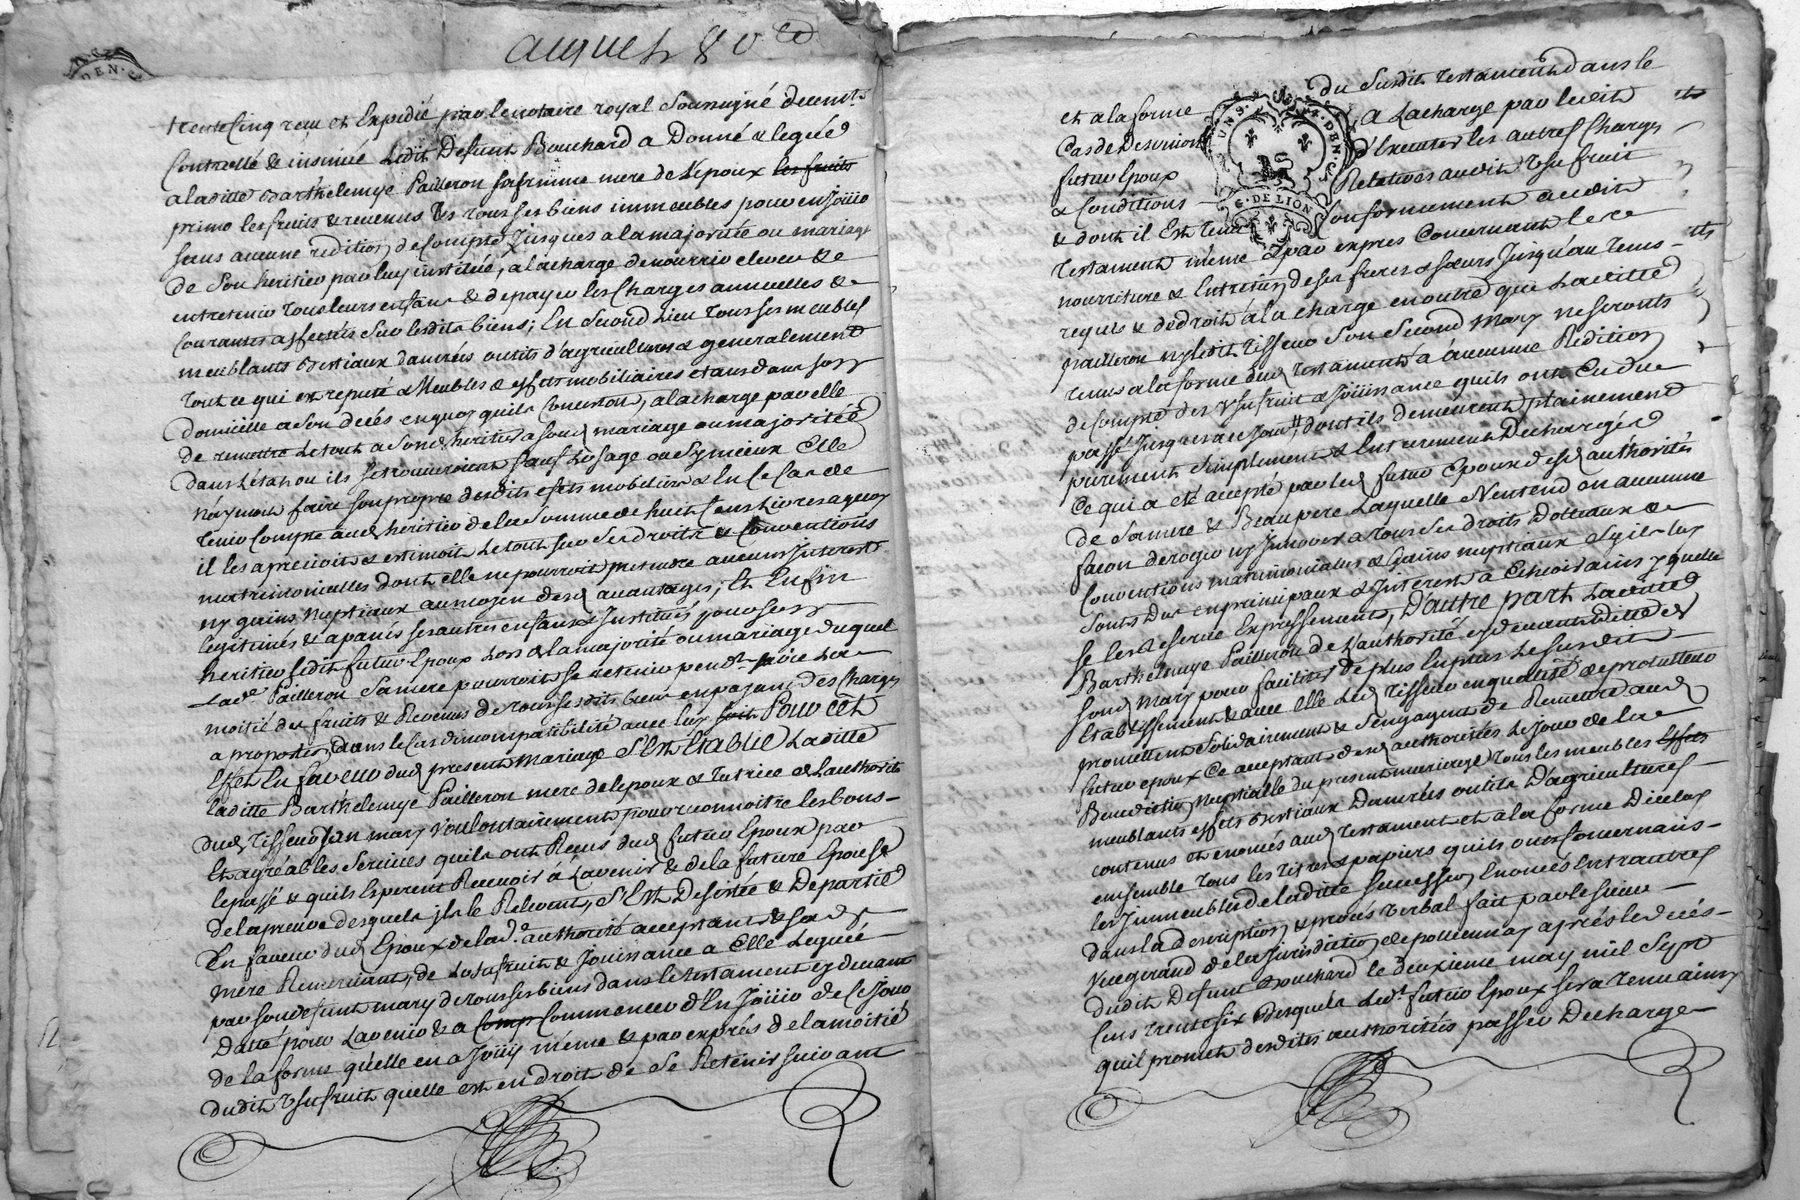 DEN. G
trente Cinq reçu et Expedié par le notaire royal Soussigné deuem.t
Controllé & insinué Ledit Deffunt Bouchard a Donné & legué
a laditte Barthelemye Pailleron sa femme mere de L'epoux les fruits
primo les fruits & revenus de tous ses biens immeubles pour en Joüir
sans aucune redition de Compte Jusques a la majorité ou mariage
de Son heritier par luy institué, a la charge de nourrir elever & e
entretenir tous leurs enfans & de payer les Charges annuelles &
Courantes affectés Sur lesdits biens; En Second Lieu tous ses meubles
meublants Bestiaux danrées outils d'agricultures & generalement
tout ce qui est reputé & Meubles & effets mobiliaires etans dans son
domicille a Son decés en quoy quils Consistent, a la charge par elle
de remettre Le tout a Sond heritier a Soud mariage ou majoritéé
dans L'état ou ils Se trouveroient Sauf Lusage ou Sy mieux Elle
N'aymoit faire Son propre desdits effets mobiliers & En Ce Cas de
tenir Compte aud heritier de la Somme de huit Cens Livres a quoy
il les aprecioit & estimoit Le tout sur Ses droits & Conventions
matrimonielles dont elle ne pourroit pretendre aucuns Interest
ny gains Nuptiaux au moyen desd avantages; Et Enfin
legitimés & apanés ses autres enfans & Institués pour son
heritier Ledit futur Epoux Lors de la majorité ou mariage duquel
Lad.e Pailleron Sa mere pourroit se retenir pend.t La
moitié des fruits & Revenus de tous sesdits biens en payant des Charges
a proportion Dans le Cas dincompatibilité avec luy Pour Cet
Effet En faveur dud present mariage S'Est Etablie Laditte
laditte Barthelemye Pailleron mere de lepoux & tutrice de L'authorité
Dud Tisseur Son mary Voulontairement pour reconnoitre les bons
Et agréables Services quils ont Reçus dud futur Epoux par
le passé & quils Esperent Recevoir à L'avenir & de la future Epouse
de la preuve desquels ils le Relevent, S'Est Desistée & Departie
En faveur dud Epoux de lad.e authorité acceptant & sad
mere Remerciant, de Lusufruit & Joüissance a Elle Leguéé
par Son defunt mary de tous ses biens dans le testament cy devant
Datté pour Lavenir & a Comp Commencer d'En Joüir de Ce Jour
de la forme quelle en a Joüis même & par exprés de la moitié
dudit Usufruit quelle est en droit de Se Retenir Suivant
et a la forme du Susdit testament dans le
Cas de Desunion a La charge par ledit
futur Epoux d'Executer les autres Charges
& Conditions Relatives audit Usufruit
& dont il Est tenu Conformement audit
G. DE LION
testament même & par expres Concernant le
nourriture & Entretien de ses freres & sœurs Jusqu'au tems
requis & de droit à la charge en outre que Laditte
Pailleron ny ledit Tisseur Son Second Mary ne seront
tenus a la forme dud testament à aucunne Redition
de Compte des Usufruit & Joüissance quils ont Eu du
passé Jusques a ce Jour, dont ils demeurent plainement
purement Simplement & Entierement Dechargés
Ce qui a eté accepté par led futur Epoux desd authorités
de Sa mere & Beaupere Laquelle N'entend en aucunne
façon deroger ny Innover a tous Ses droits Dotteaux &
Conventions matrimoniales & Gains nuptiaux
dus en principaux & Interest à Echoir ains quelle
se les Reserve Expressement, D'autre part Laditte
Barthelemye Pailleron de L'authorité ditte de
Sond Mary pour faciliter de plus En plus Le Susdit
Etablissement & avec elle Led Tisseur en qualité
promettent Solidairement & S'engagent de Remettre aud
futur epoux Ce acceptant desd authorités Le jour de la
Benediction Nuptialle du present mariage tous les meubles Effets
meublants effets Bestiaux Danrées outils D'agricultures
contenus et enoncés aud testament et a la forme D'icelay
ensemble tous les titres & papiers quils ont Concernants
les Immeubles de laditte Succession Enoncés Entrautres
Dans la description & procés Verbal fait par le sieur
Vicegerand de la Jurisdiction de pollionnay aprés le décés
Dudit Defunt Bouchard le deuxième may mil Sept
Cens trente six Desquels Led.t futur Epoux sera tenu ainsy
quil promet desdites authorités passer Decharge